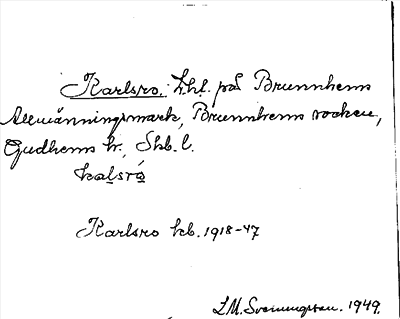 Karlsro. Lhl. på Brunnhems
Allmänningsmark, Brunnhems socken,
Gudhems hr, Skb. l.
kalsró
Karlsro kb. 1918-47
L.M. Svenungsson. 1949.